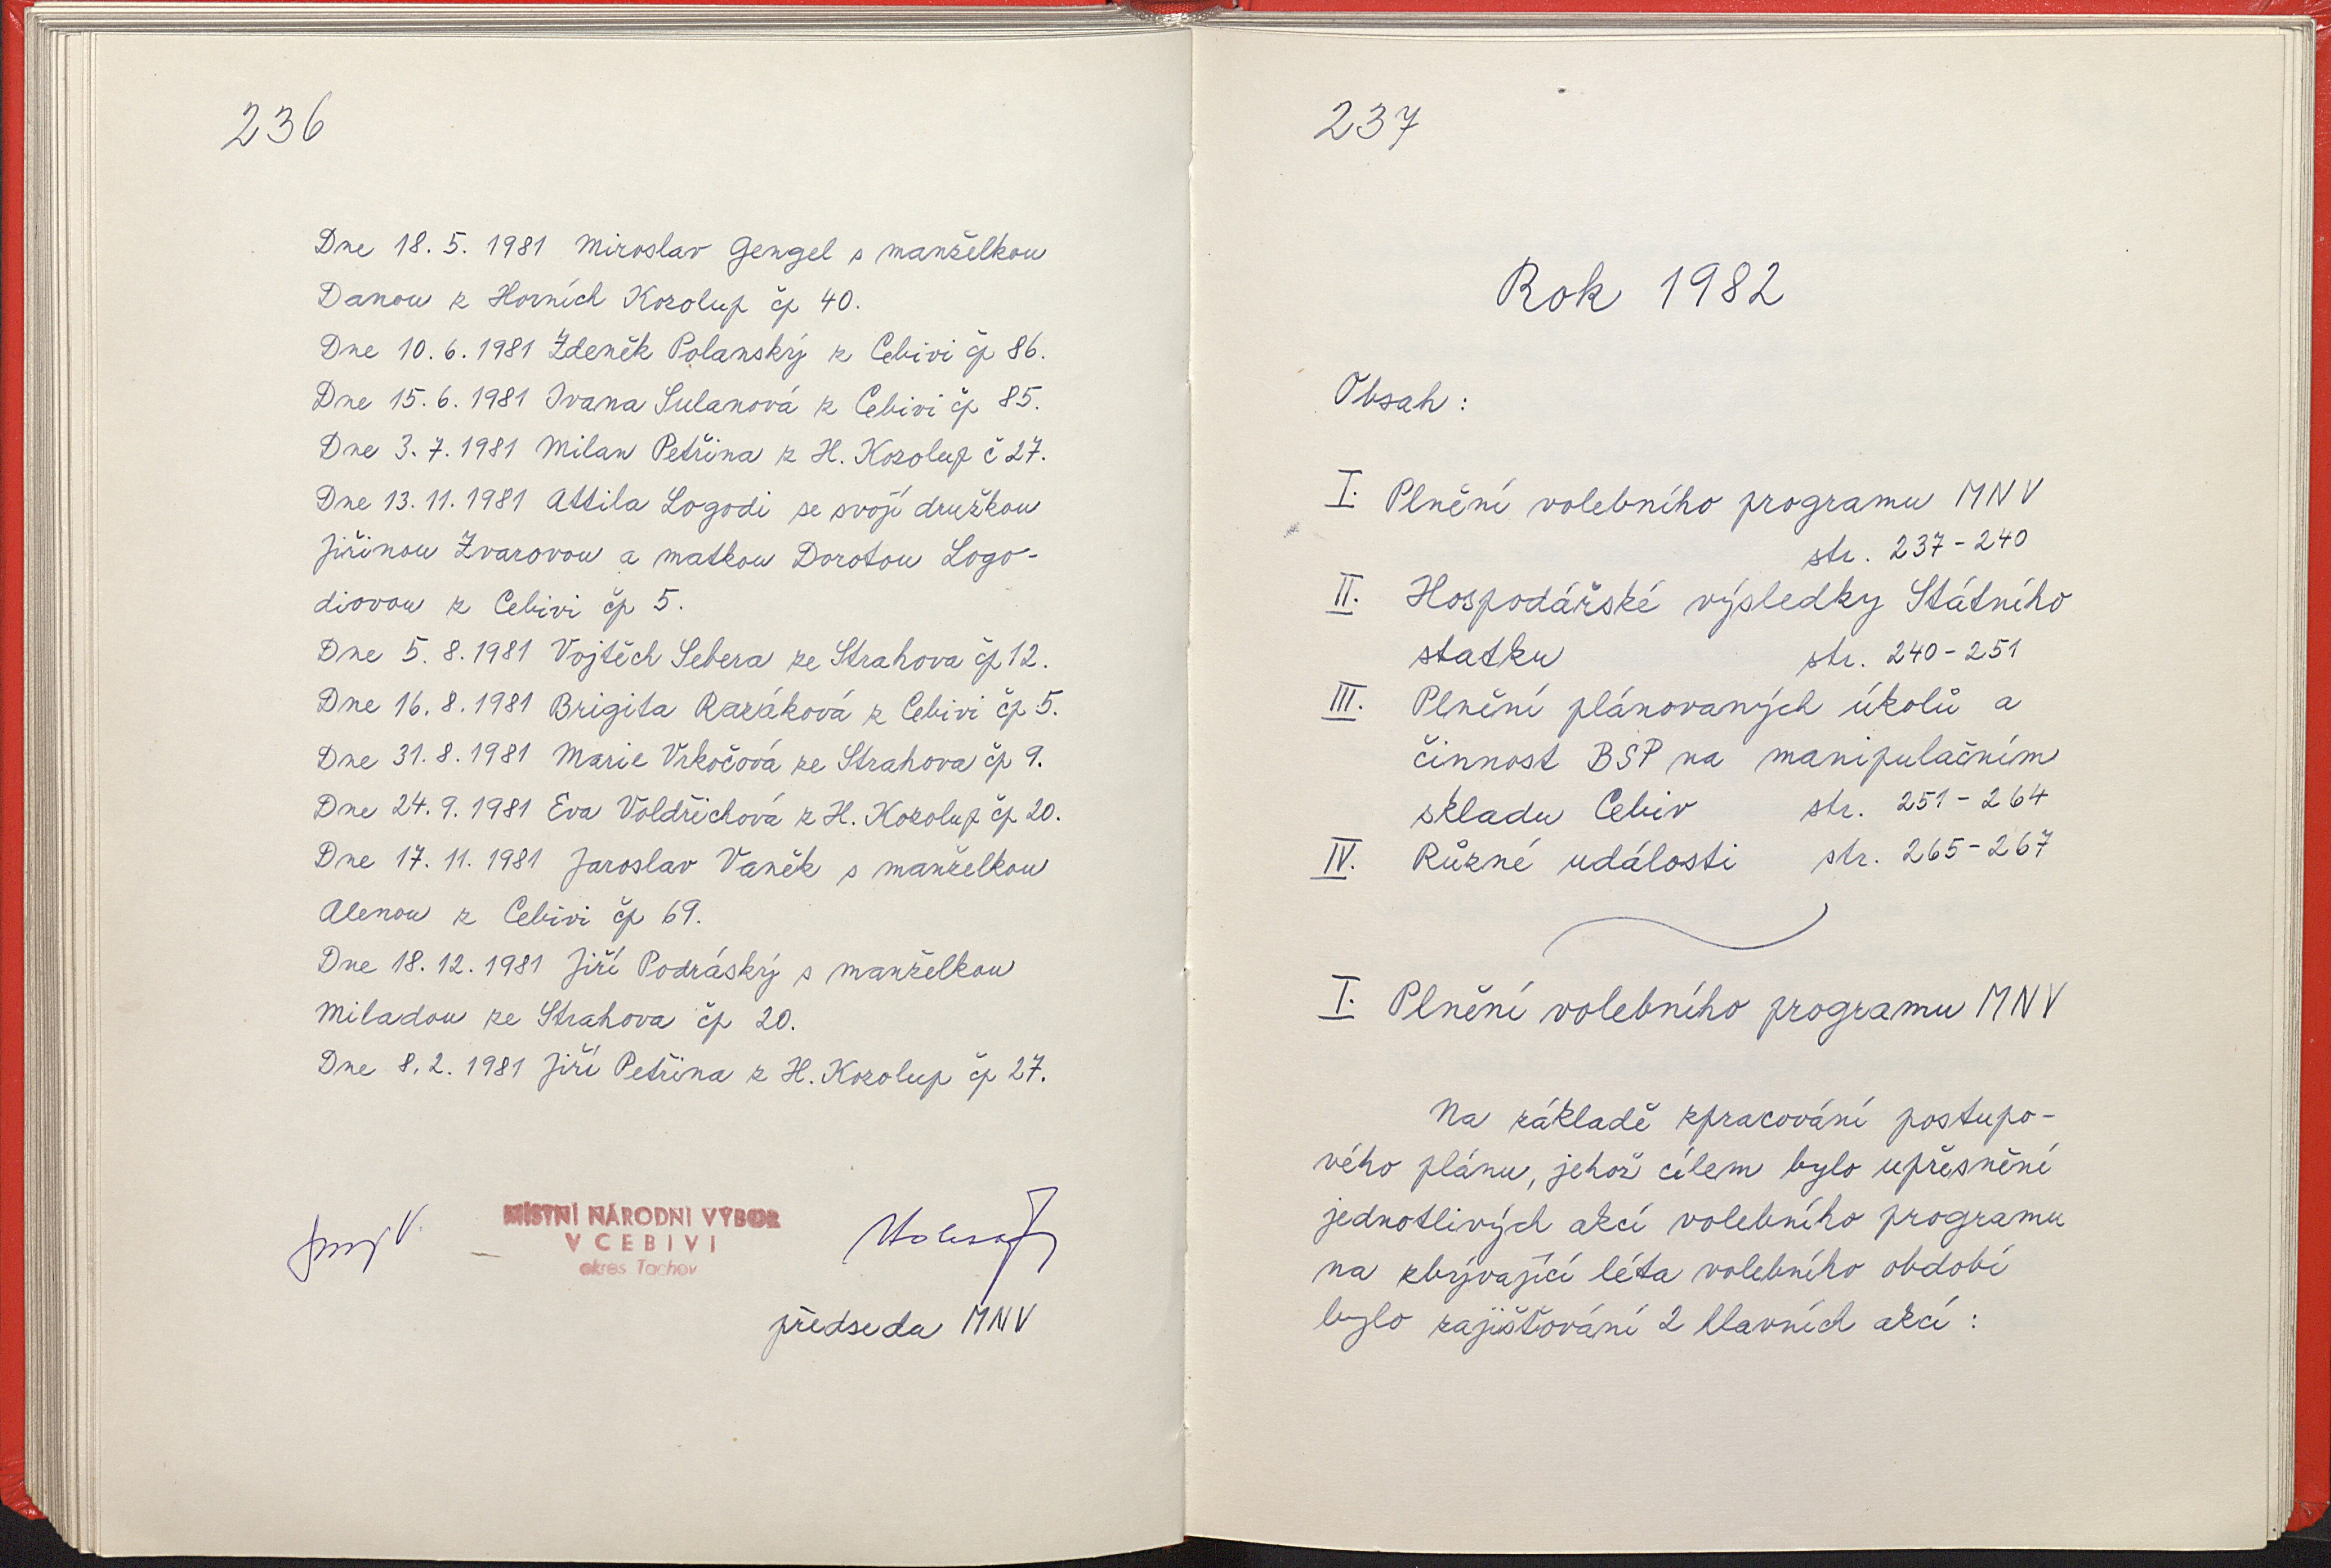 236
Dne 18. 5. 1981 Miroslav Gengel s manželkou
Danou z Horních Kozolup čp 40.
Dne 10. 6. 1981 Zdeněk Polanský z Cebivi čp 86.
Dne 15. 6. 1981 Ivana Sulanová z Cebivi čp 85.
Dne 3. 7. 1981 Milan Petřina z H. Kozolup č 27.
Dne 13. 11. 1981 Attila Logodi se svojí družkou
Jiřinou Zvarovou a matkou Dorotou Logo-
diovou z Cebivi čp 5.
Dne 5. 8. 1981 Vojtěch Sebera ze Strahova čp 12.
Dne 16. 8. 1981 Brigita Razáková z Cebivi čp 5.
Dne 31. 8. 1981 Marie Vrkočová ze Strahova čp 9.
Dne 24. 9. 1981 Eva Voldřichová z H. Kozolup čp 20.
Dne 17. 11. 1981 Jaroslav Vaněk s manželkou
Alenou z Cebivi čp 69.
Dne 18. 12. 1981 Jiří Podráský s manželkou
Miladou ze Strahova čp 20.
Dne 8. 2. 1981 Jiří Petřina z H. Kozolup čp 27.
MÍSTNÍ NÁRODNÍ VÝBOR
V CEBIVI
okres Tachov
předseda MNV
237
Rok 1982
Obsah:
I. Plnění volebního programu MNV
str. 237-240
II. Hospodářské výsledky Státního
statku str. 240-251
III. Plnění plánovaných úkolů a
činnost BSP na manipulačním
skladu Cebiv str. 251-264
IV. Různé události str. 265-267
I. Plnění volebního programu MNV
Na základě zpracování postupo-
vého plánu, jehož cílem bylo upřesnění
jednotlivých akcí volebního programu
na zbývající léta volebního období
bylo zajišťování 2 hlavních akcí: